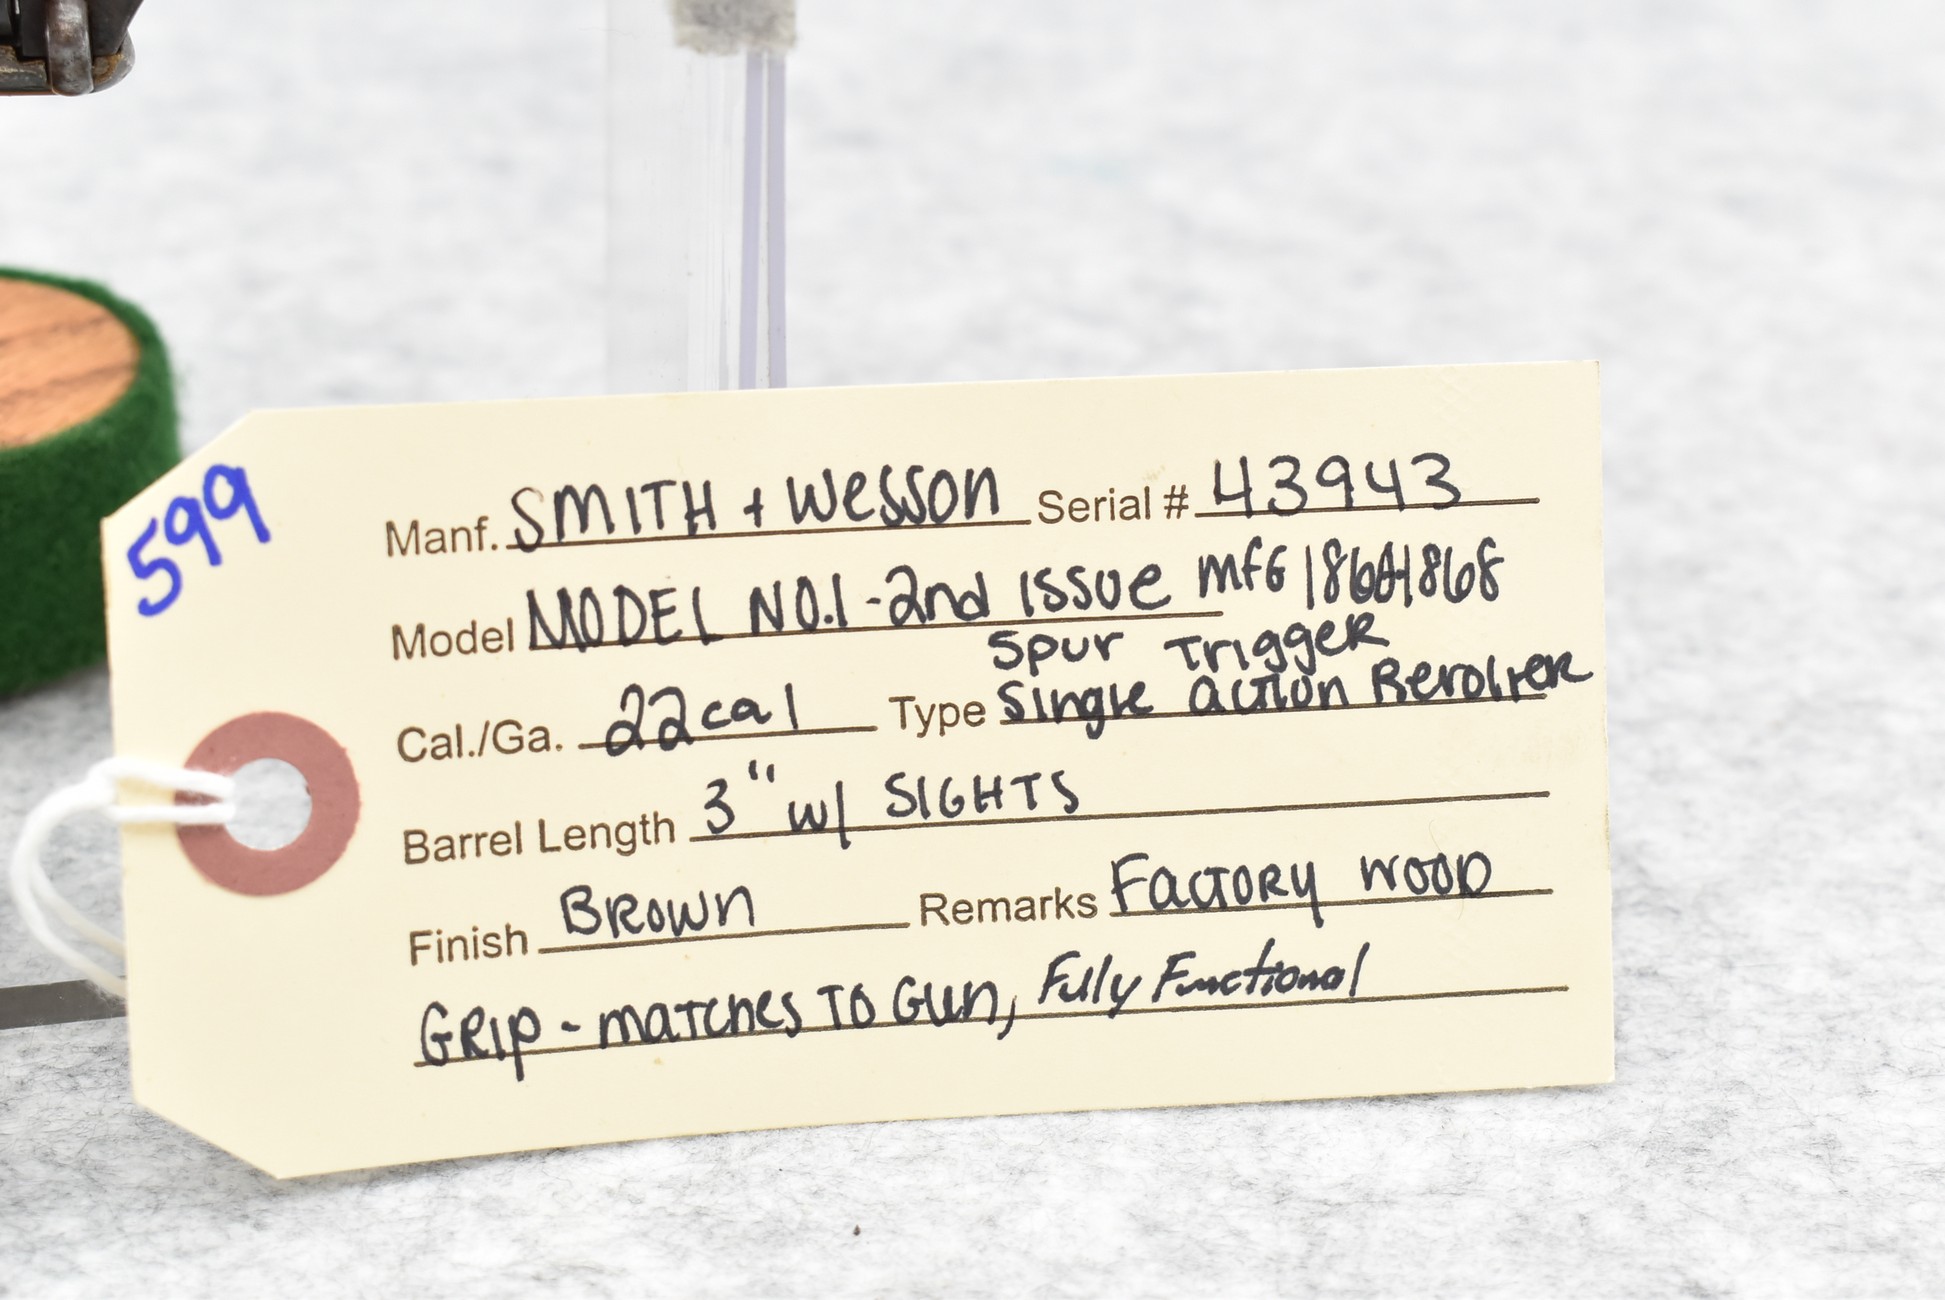 599
Manf. SMITH + Wesson Serial # 43943
Model MODEL NO.1 - 2nd ISSUE MFG 1860-1868
Spur Trigger
Cal./Ga. 22cal Type Single Action Revolver
Barrel Length 3" w/ SIGHTS
Finish BROWN Remarks FACTORY WOOD
GRIP - MATCHES TO GUN, Fully Functional